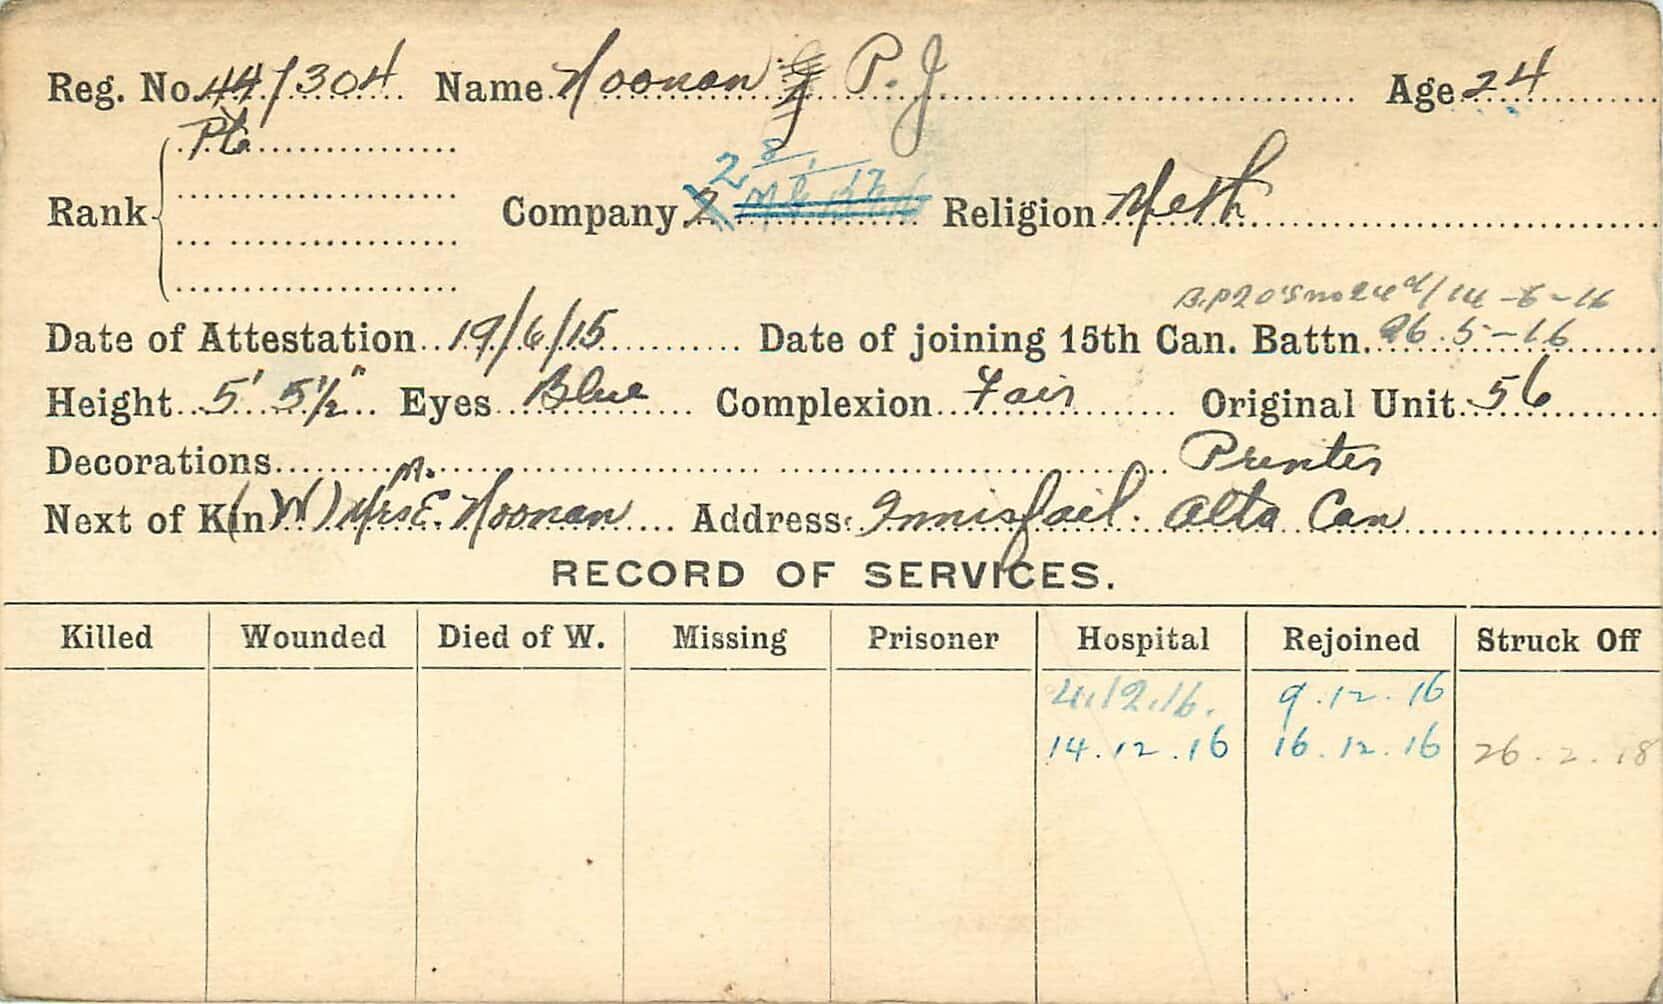 Reg. No. 441304 Name Noonan P. J. Age 24
Pte
2 8
Rank Company 2 Religion Meth
14-6-16
Date of Attestation 19/6/15 Date of joining 15th Can. Battn. 26.5-16
Height 5' 5½" Eyes Blue Complexion Fair Original Unit 56
Decorations Printer
Next of Kin (W) Mrs M. E. Noonan Address: Innisfail. Alta Can
RECORD OF SERVICES.
Killed Wounded Died of W. Missing Prisoner Hospital Rejoined Struck Off
4.12.16. 9.12.16
14.12.16 16.12.16 26.2.18